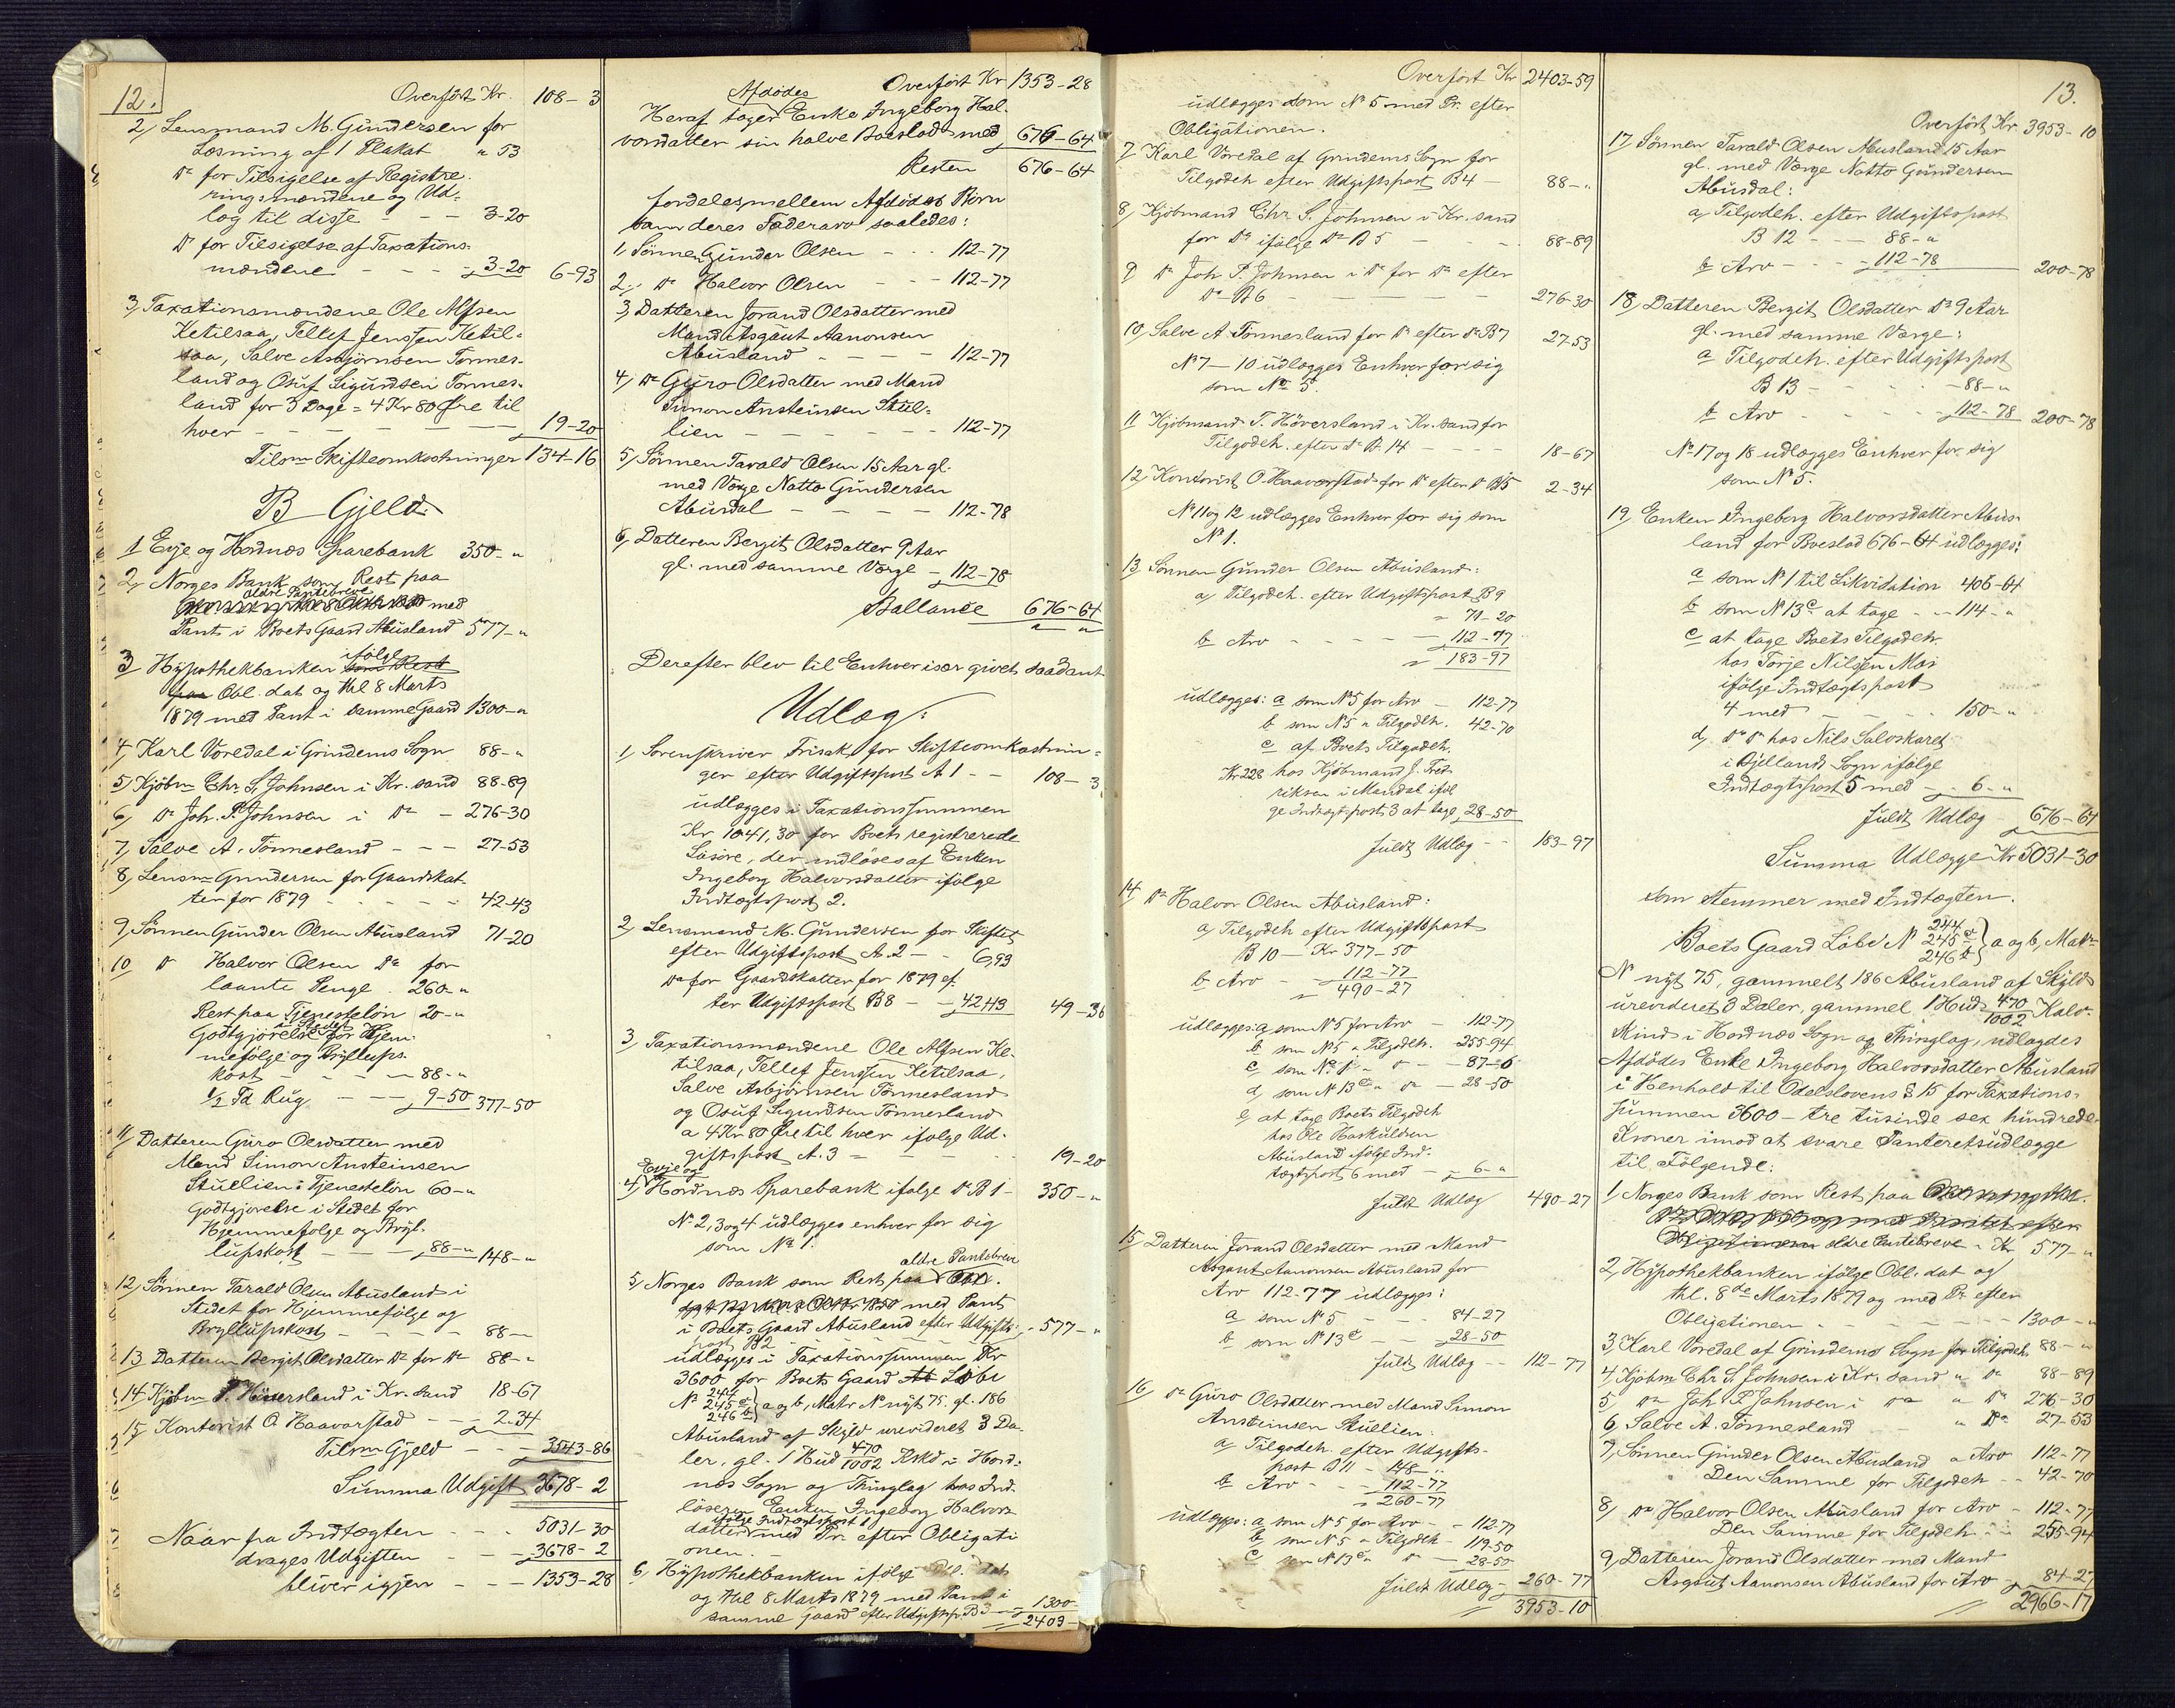 12.
Overført Kr. 108-3
2, Lensmand M. Gundersen for
Læsning af 1 Plakat " 53
Do for Tilsigelse af Registre-
ringsmændene og Ud-
læg til disse - - - 3-20
Do for Tilsigelse af Taxations-
mændene - - - 3-20 6-93
3, Taxationsmændene Ole Alfsen
Ketilsaa, Tellef Jenssen Ketil-
saa, Salve Asbjørnsen Tønnes-
land og Osuf Sigurdsen Tønnes-
land for 3 Dage = 4 Kr 80 Øre til
hver - - - - 19-20
Tilsm Skifteomkostninger 134-16
B Gjeld.
1 Evje og Hordnæs Sparebank 350-"
2, Norges Bank som Rest paa
ældre Pantebreve
med
Pant i Boets Gaard Abusland 577-"
3 Hypothekbanken ifølge som Rest
paa Obl. dat og thl 8 Marts
1879 med Pant i samme Gaard 1300-"
4, Karl Voredal i Grindems Sogn 88-"
5, Kjøbm Chr. S. Johnsen i Kr. sand 88-89
6, Do Joh. P. Johnsen i Do - 276-30
7, Salve A. Tønnesland - - - 27-53
8, Lensm Gundersen for Gaardskat-
ter for 1879 - - - 42-43
9, Sønnen Gunder Olsen Abusland 71-20
10 Do Halvor Olsen Do for
laante Penge 260-"
Rest paa Tjenesteløn 20-"
Godtgjørelse i Stedet for Hjem-
mefølge og Bryllups-
kost - - - 88-"
1/2 Td Rug - - - 9-50 377-50
11, Datteren Guro Olsdatter med
Mand Simon Ansteinsen
Stuelien: Tjenesteløn 60-"
Godtgjørelse i Stedet for
Hjemmefølge og Bryl-
lupskost - - - 88-" 148-"
12, Sønnen Tarald Olsen Abusland i
Stedet for Hjemmefølge og
Bryllupskost - - - 88-
13 Datteren Bergit Olsdatter Do for Do 88-"
14 Kjøbm T. Høversland i Kr. sand 18-67
15 Kontorist O. Haaverstad - - - 2-34
Tilsm Gjeld - - - 3543-86
Summa Udgift 3678-2
Naar fra Indtægten - - - 5031-30
drages Udgiften - - - 3678-2
bliver igjen - - - 1353-28
Overført Kr 1353-28
Afdødes
Heraf tager Enke Ingeborg Hal-
vorsdatter sin halve Boeslod med 676-64
Resten 676-64
fordeles mellem Afdødes Børn
som deres Fæderarv saaledes:
1, Sønnen Gunder Olsen - - - 112-77
2, Do Halvor Olsen - - - 112-77
3, Datteren Jorand Olsdatter med
Mand Asgaut Aanonsen
Abusland - - - 112-77
4, Do Guro Olsdatter med Mand
Simon Ansteinsen Stul-
lien - - - 112-77
5, Sønnen Tarald Olsen 15 Aar gl.
med Værge Natto Gundersen
Abusdal - - - 112-78
6, Datteren Bergit Olsdatter 9 Aar
gl. med samme Værge - 112-78
Ballance 676-64
Derefter blev til Enhver især givet saadant
Udlæg:
1, Sorenskriver Frisak for Skifteomkostnin-
ger efter Udgiftspost A 1 - - 108-3
udlægges i Taxationssummen
Kr 1041,30 for Boets registrerede
Løsøre, der indløses af Enken
Ingeborg Halvorsdatter ifølge
Indtægtspost 2.
2, Lensmand M. Gundersen for Skiftet
efter Udgiftspost A. 2 - - 6,93
Do for Gaardskatter for 1879 ef-
ter Udgiftspost B8 - - 42,43 49-36
3, Taxationsmændene Ole Alfsen Ke-
tilsaa, Tellef Jenssen Ketilsaa,
Salve Asbjørnsen Tønnesland
og Osuf Sigurdsen Tønnesland
a 4 Kr 80 Øre til hver ifølge Ud-
giftspost A. 3 - - - 19-20
Evje og
4, Hordnæs Sparebank ifølge Do B 1 - 350-"
No 2, 3 og 4 udlægges enhver for sig
som No 1.
ældre Pantebreve
5, Norges Bank som Rest paa Obl.
1850 med Pant
i Boets Gaard Abusland efter Udgifts- - 577-"
post B2
udlægges i Taxationssummen Kr
3600 for Boets Gaard Løbe
No 244 245 a 246 b } a og b, Matr No nyt 75. gl. 186
Abusland af Skyld urevideret 3 Da-
ler, gl. 1 Hud 470/1002 Klskd i Hord-
næs Sogn og Thinglag hos Ind-
løseren Enken Ingeborg Halvors-
ifølge Indtægtspost 1
datter med Pr. efter Obligati-
onen. -
6, Hypothekbanken ifølge Obl. dat
og thl 8 Marts 1879 med Pant i
samme Gaard efter Udgiftsp. B3 - 1300-
2403-
Overført Kr 2403-59
udlægges som No 5 med Pr. efter
Obligationen.
7 Karl Voredal af Grindems Sogn for
Tilgodeh efter Udgiftspost B4 - 88-"
8, Kjøbmand Chr. S. Johnsen i Kr. sand
for Do ifølge Do B 5 - - 88-89
9 Do Joh. P. Johnsen i Do for Do efter
Do - B6 - - - 276-30
10, Salve A. Tønnesland for Do efter Do B7 27-53
No 7 - 10 udlægges Enhver for sig
som No 5
11 Kjøbmand T. Høversland i Kr. sand for
Tilgodeh. efter Do B. 14 - - - 18-67
12, Kontorist O. Haaverstad for Do efter Do B15 2-34
No 11 og 12 udlægges Enhver for sig som
No 1.
13 Sønnen Gunder Olsen Abusland:
a, Tilgodeh. efter Udgiftspost B9
71-20
b Arv - - - 112-77
183-97
udlægges: a som No 5 for Arv - 112-77
b som No 5 " Tilgodeh. 42-70
c af Boets Tilgodeh.
Kr 228 hos Kjøbmand J. Fred-
riksen i Mandal iføl-
ge Indtægtspost 3 at tage 28-50
fuldt Udlæg - - 183-97
14 Do Halvor Olsen Abusland:
a, Tilgodeh efter Udgiftspost
B 10 - Kr 377-50
b Arv - 112-77
490-27
udlægges: a, som No 5 for Arv - 112-77
b som No 5 " Tilgodeh. - 255-94
c, som No 1 " " - 87-06
d, som No 13 c " Do - 28-50
e, at tage Boets Tilgodeh
hos Ole Haskuldsen
Abusland ifølge Ind-
tægtspost 6 med - 6-"
fuldt Udlæg 490-27
15 Datteren Jorand Olsdatter med Mand
Asgaut Aanonsen Abusland for
Arv 112-77 udlægges:
a som No 5 - - - 84-27
b som No 13 c - - 28-50
fuldt Udlæg - - 112-77
16, Do Guro Olsdatter med Mand Simon
Ansteinsen Stuelien:
a Tilgodeh. efter Udgifts-
post B 11 - 148-"
b Arv - - - 112-77
260-77
udlægges: a, som No 5 for Arv - - 112-77
b, som No 5 " Tilgodeh - 119-50
c, som No 13 c " Do - 28-50
fuldt Udlæg - 260-77
3953-10
13.
Overført Kr 3953-10
17 Sønnen Tarald Olsen Abusland 15 Aar
gl. med Værge Natto Gundersen
Abusdal:
a, Tilgodeh. efter Udgiftspost
B 12 - - - 88-"
b Arv - - - 112-78 200-78
18, Datteren Bergit Olsdatter Do 9 Aar
gl. med samme Værge:
a Tilgodeh. efter Udgiftspost
B 13 - - - 88-"
b Arv - - - 112-78 200-78
No 17 og 18 udlægges Enhver for sig
som No 5.
19, Enken Ingeborg Halvorsdatter Abus-
land for Boeslod 676-64 udlægges:
a som No 1 til Likvidation 406-64
b som No 13 c at tage - - 114-"
c at tage Boets Tilgodeh.
hos Torje Nilssen Moi
ifølge Indtægtspost
4 med - - - 150-"
d, Do Do hos Nils Saloskaret
i Bjelland Sogn ifølge
Indtægtspost 5 med - 6-"
fuldt Udlæg - 676-64
Summa Udlægge Kr 5031-30
som stemmer med Indtægten.
Boets Gaard Løbe No 244 245 a 246 b } a og b, Matr
No nyt 75, gammelt 186 Abusland af Skyld
urevideret 3 Daler, gammel 1 Hud 470/1002 Kalv-
skind i Hordnæs Sogn og Thinglag, udlagdes
Afdødes Enke Ingeborg Halvorsdatter Abusland
i Henhold til Odelslovens § 15 for Taxations-
summen 3600 - tre tusinde sex hundrede
Kroner imod at svare Panteretsudlægge
til Følgende:
1 Norges Bank som Rest paa
ældre Pantebreve - Kr 577-"
2, Hypothekbanken ifølge Obl. dat og
thl. 8de Marts 1879 og med Pr. efter
Obligationen - - - 1300-"
3, Karl Voredal af Grindems Sogn for Tilgodeh. 88-"
4, Kjøbm Chr S. Johnsen i Kr. sand " Do 88-89
5, Do Joh. P. Johnsen i Do " Do 276-30
6, Salve A. Tønnesland " Do 27-53
7, Sønnen Gunder Olsen Abusland " Arv 112-77
Den Samme for Tilgodeh - - 42-70
8, Do Halvor Olsen Abusland for Arv - 112-77
Den Samme for Tilgodeh - - 255-94
9, Datteren Jorand Olsdatter med Mand
Asgaut Aanonsen Abusland for Arv - 84-27
2966-17